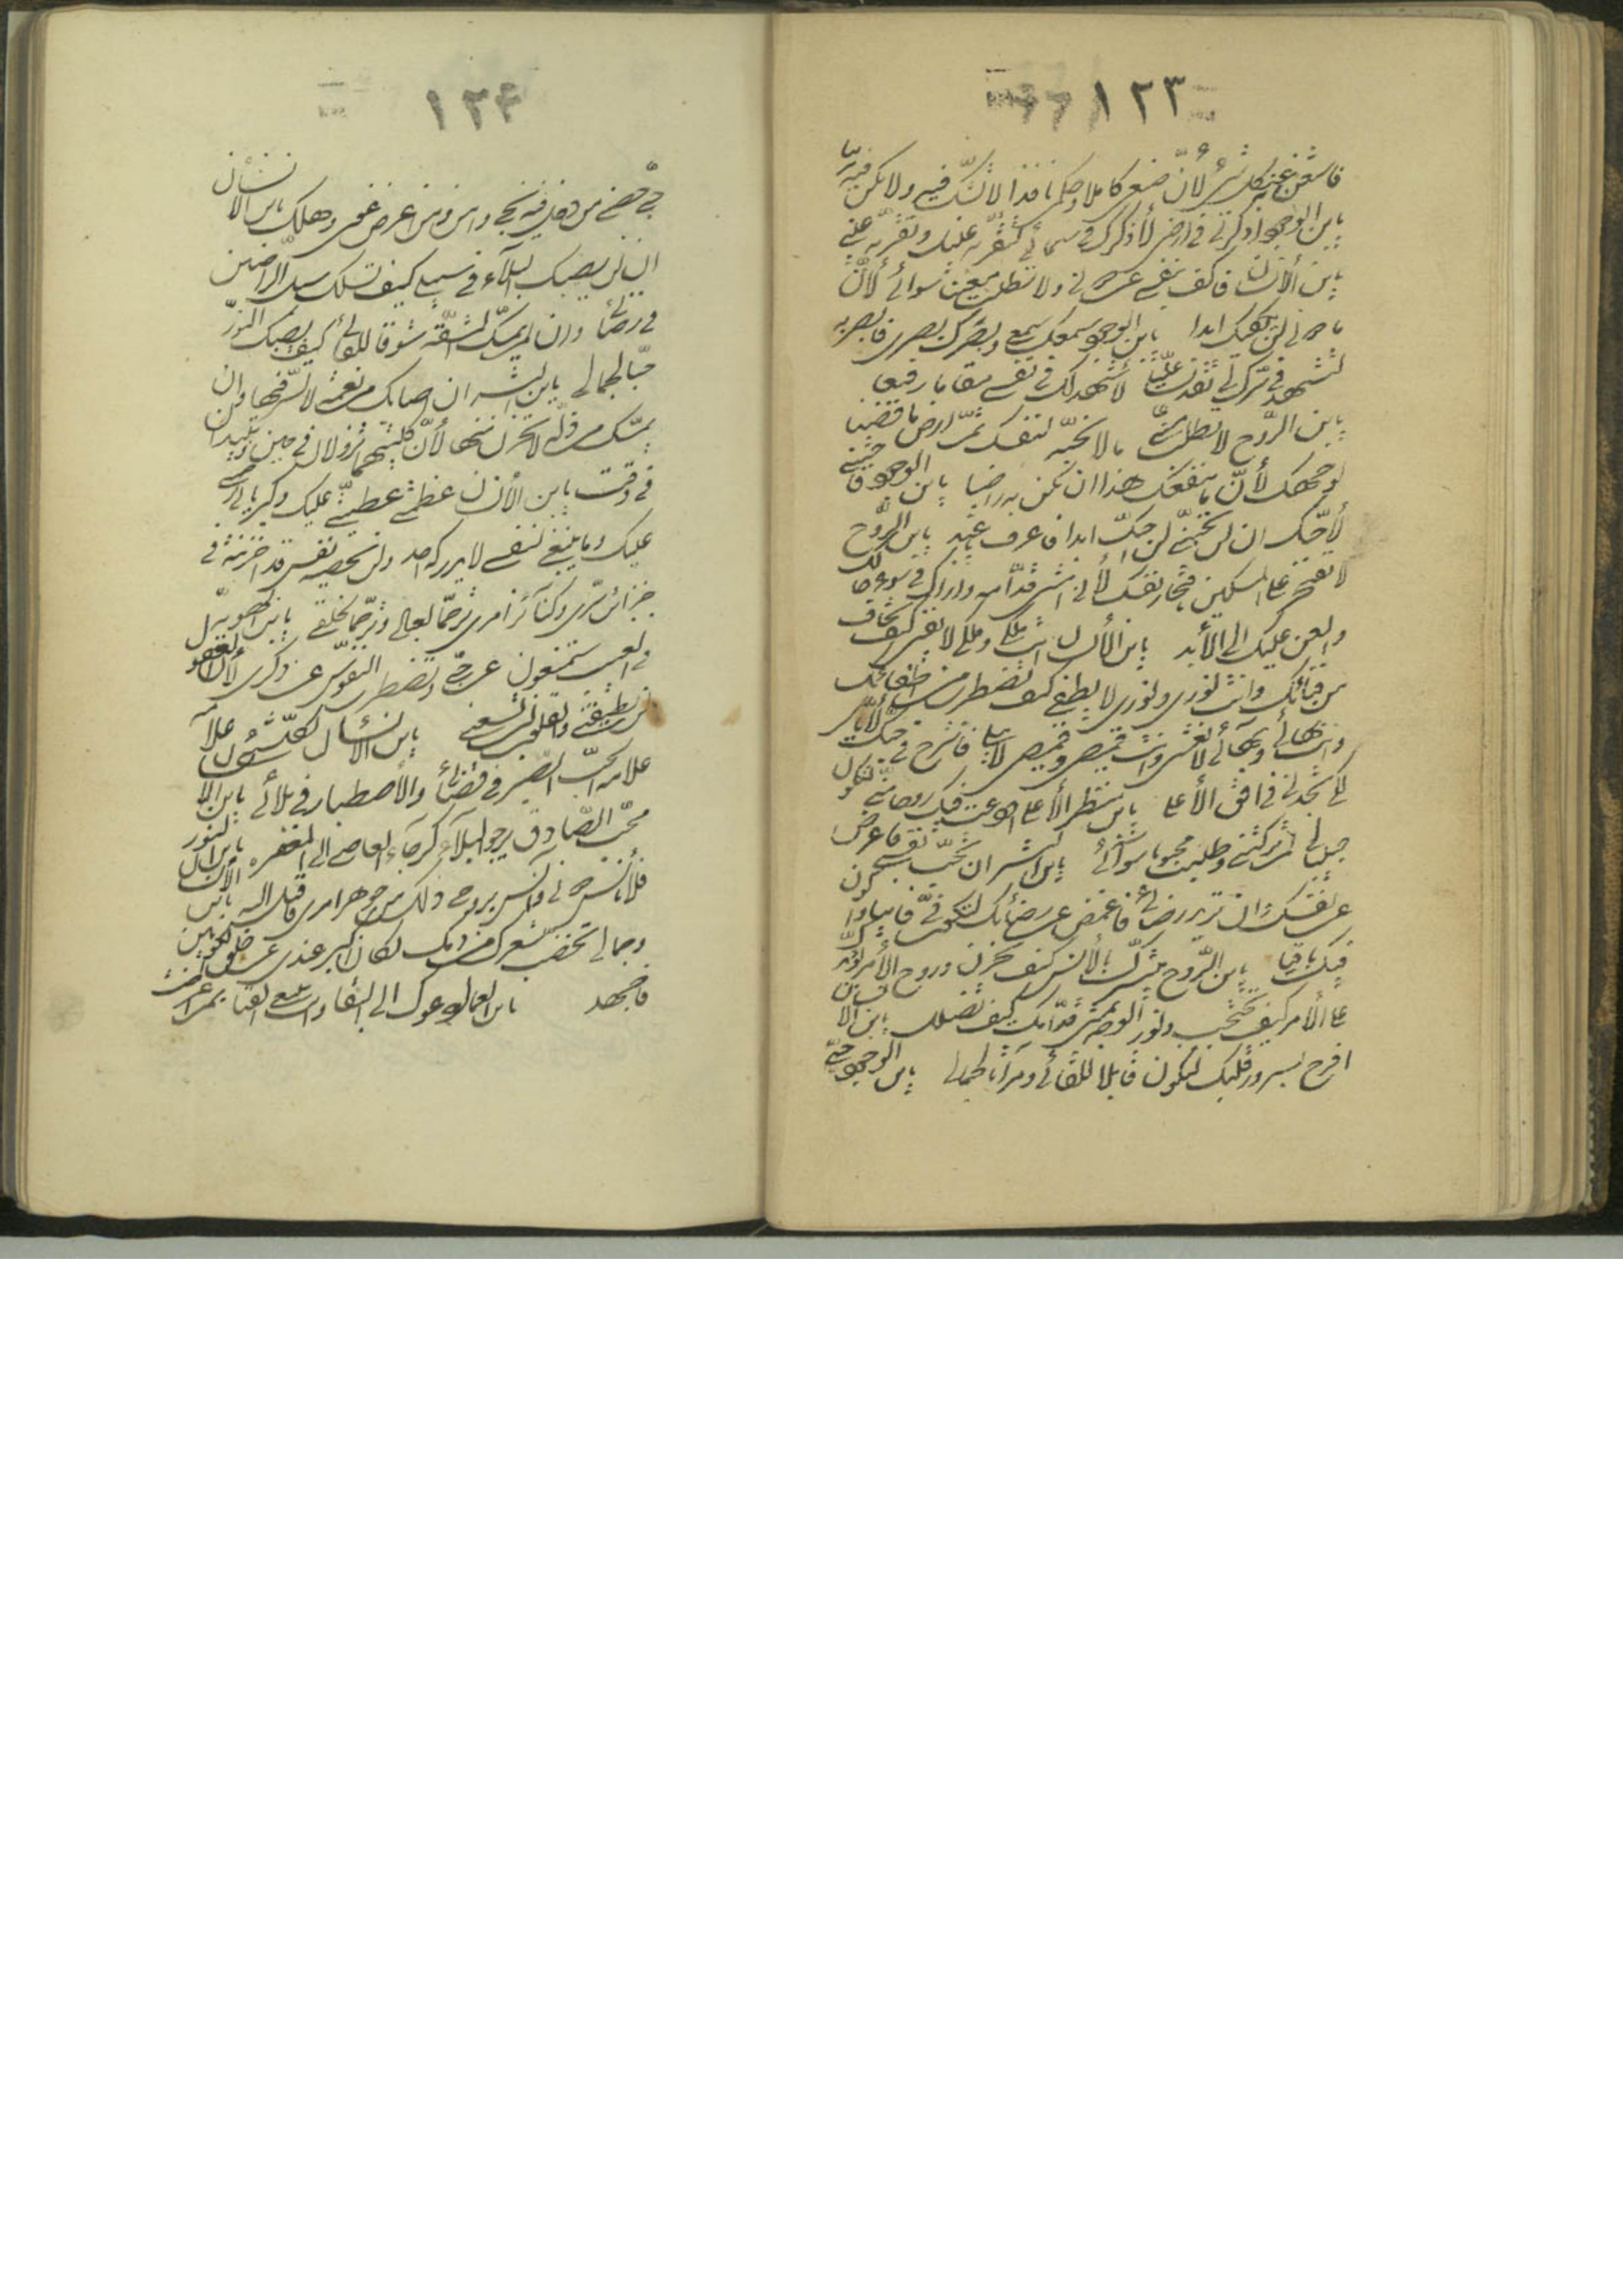 ١٢٣
فاستغن به عن كل شيء لأنّ صنعي كاملا وحكمي نافذا لا تشكّ فيه ولا تكن فيه مريبا
يابن الوجود اذكرني في ارضي لأذكرك في سمائي لتقرّ به عينك وتقرّ به عيني
يابن الأنسان فاكف بنفسي عن دوني ولا تطلب معينا سوائي لأنّ
ما دوني لن يكفيك ابدا يابن الوجود سمعك سمعي وبصرك بصري فابصر به
لتشهد في سرّك لي تقديسا عليّا لأشهد لك في نفسي مقاما رفيعا
يابن الرّوح لا تطلب منّي ما لا تحبّه لنفسك ثمّ ارض بما قضينا
لوجهك لأنّ ما ينفعك هذا ان تكن به راضيا يابن الوجود فاحببني
لأحبّك ان لن تحبّني لن احبّك ابدا فاعرف يا عبد يابن الرّوح
لا تفتخر على المسكين بافتخار نفسك لأنّي امشي قدّامه واراك في سوء حالك
والعن عليك الى الأبد يابن الأنسان انت ملكي وملكي لا يفنى كيف تخاف
من فنائك وانت نوري ونوري لا يطفى كيف تضطرب من اطفائك
وانت بهائي وبهائي لا يغشى وانت قميصي وقميصي لا يبلى فاسترح في حبّك ايّاي
لكي تجدني في افق الأعلى يابن منظر الأعلى اودعت فيك روحا منّي لتكون
حبيبا لي لم تركتني وطلبت محبوبا سوائي يابن البشر ان تحبّ نفسي فاعرض
عن نفسك وان ترد رضائي فاغمض عن رضائك لتكون فيّ فانيا واكون
فيك باقيا يابن الرّوح بشّرتك بالأنس كيف تحزن وروح الأمر يؤيّدك
على الأمر كيف تحتجب ونور الوجه يمشي قدّامك كيف تضلّ يابن الانسان
افرح بسرور قلبك لتكون قابلا للقائي ومرآتا لجمالي يابن الوجود حبّي
١٢٤
حصني من دخل فيه نجى وامن ومن اعرض غوى وهلك يابن الأنسان
ان لن يصيبك البلاء في سبيلي كيف تسلك سبل الرّاضين
في رضائي وان لم تمسّك المشقّة شوقا للقائي كيف يصيبك النّور
حبّا لجمالي يابن البشر ان اصابتك نعمة لا تسرّ بها وان
تمسّك ذلّة لا تحزن منها لأنّ كلتيهما تزولان في حين وتبيدان
في وقت يابن الأنسان عظمتي عطيّتي عليك وكبريائي رحمتي
عليك وما ينبغي لنفسي لا يدركه احد ولن تحصيه نفس قد اخزنته في
خزائن سرّي وكنائز امري ترحّما لعبادي وترحّما لخلقي يابن الهويّه
في الغيب ستمنعون عن حبّي وتضطرب النّفوس عن ذكري لأنّ العقول
لن تطيقني والقلوب لن تسعني يابن الأنسان لكلّ شيء علامه
علامة الحبّ الصّبر في قضائي والأصطبار في بلائي يابن الأنسان
محبّ الصّادق يرجو البلاء كرجاء العاصي الى المغفره يابن النّور
فأنس دوني وآنس بروحي ذلك من جوهر امري فاقبل اليه يابن الأنسان
وجمالي تخضّب شعرك من دمك لكان اكبر عندي عن خلق الكونين
فاجهد يابن العماء ادعوك الى البقاء وانت تبتغي الفناء بم اعرضت